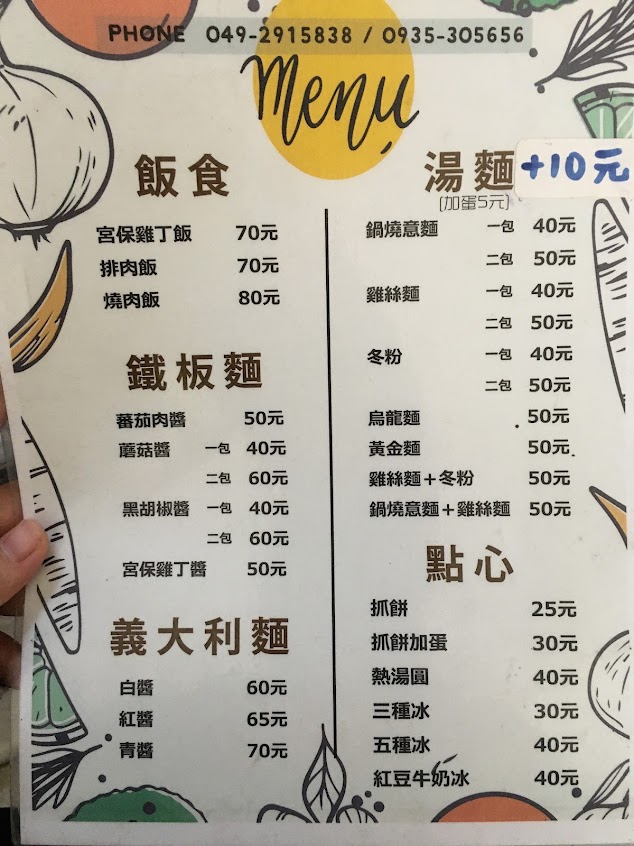 PHONE 049-2915838 / 0935-305656
Menu
飯食
宮保雞丁飯 70元
排肉飯 70元
燒肉飯 80元
鐵板麵
蕃茄肉醬 50元
蘑菇醬 一包 40元
二包 60元
黑胡椒醬 一包 40元
二包 60元
宮保雞丁醬 50元
義大利麵
白醬 60元
紅醬 65元
青醬 70元
湯麵 +10元
(加蛋5元)
鍋燒意麵 一包 40元
二包 50元
雞絲麵 一包 40元
二包 50元
冬粉 一包 40元
二包 50元
烏龍麵 50元
黃金麵 50元
雞絲麵+冬粉 50元
鍋燒意麵+雞絲麵 50元
點心
抓餅 25元
抓餅加蛋 30元
熱湯圓 40元
三種冰 30元
五種冰 40元
紅豆牛奶冰 40元